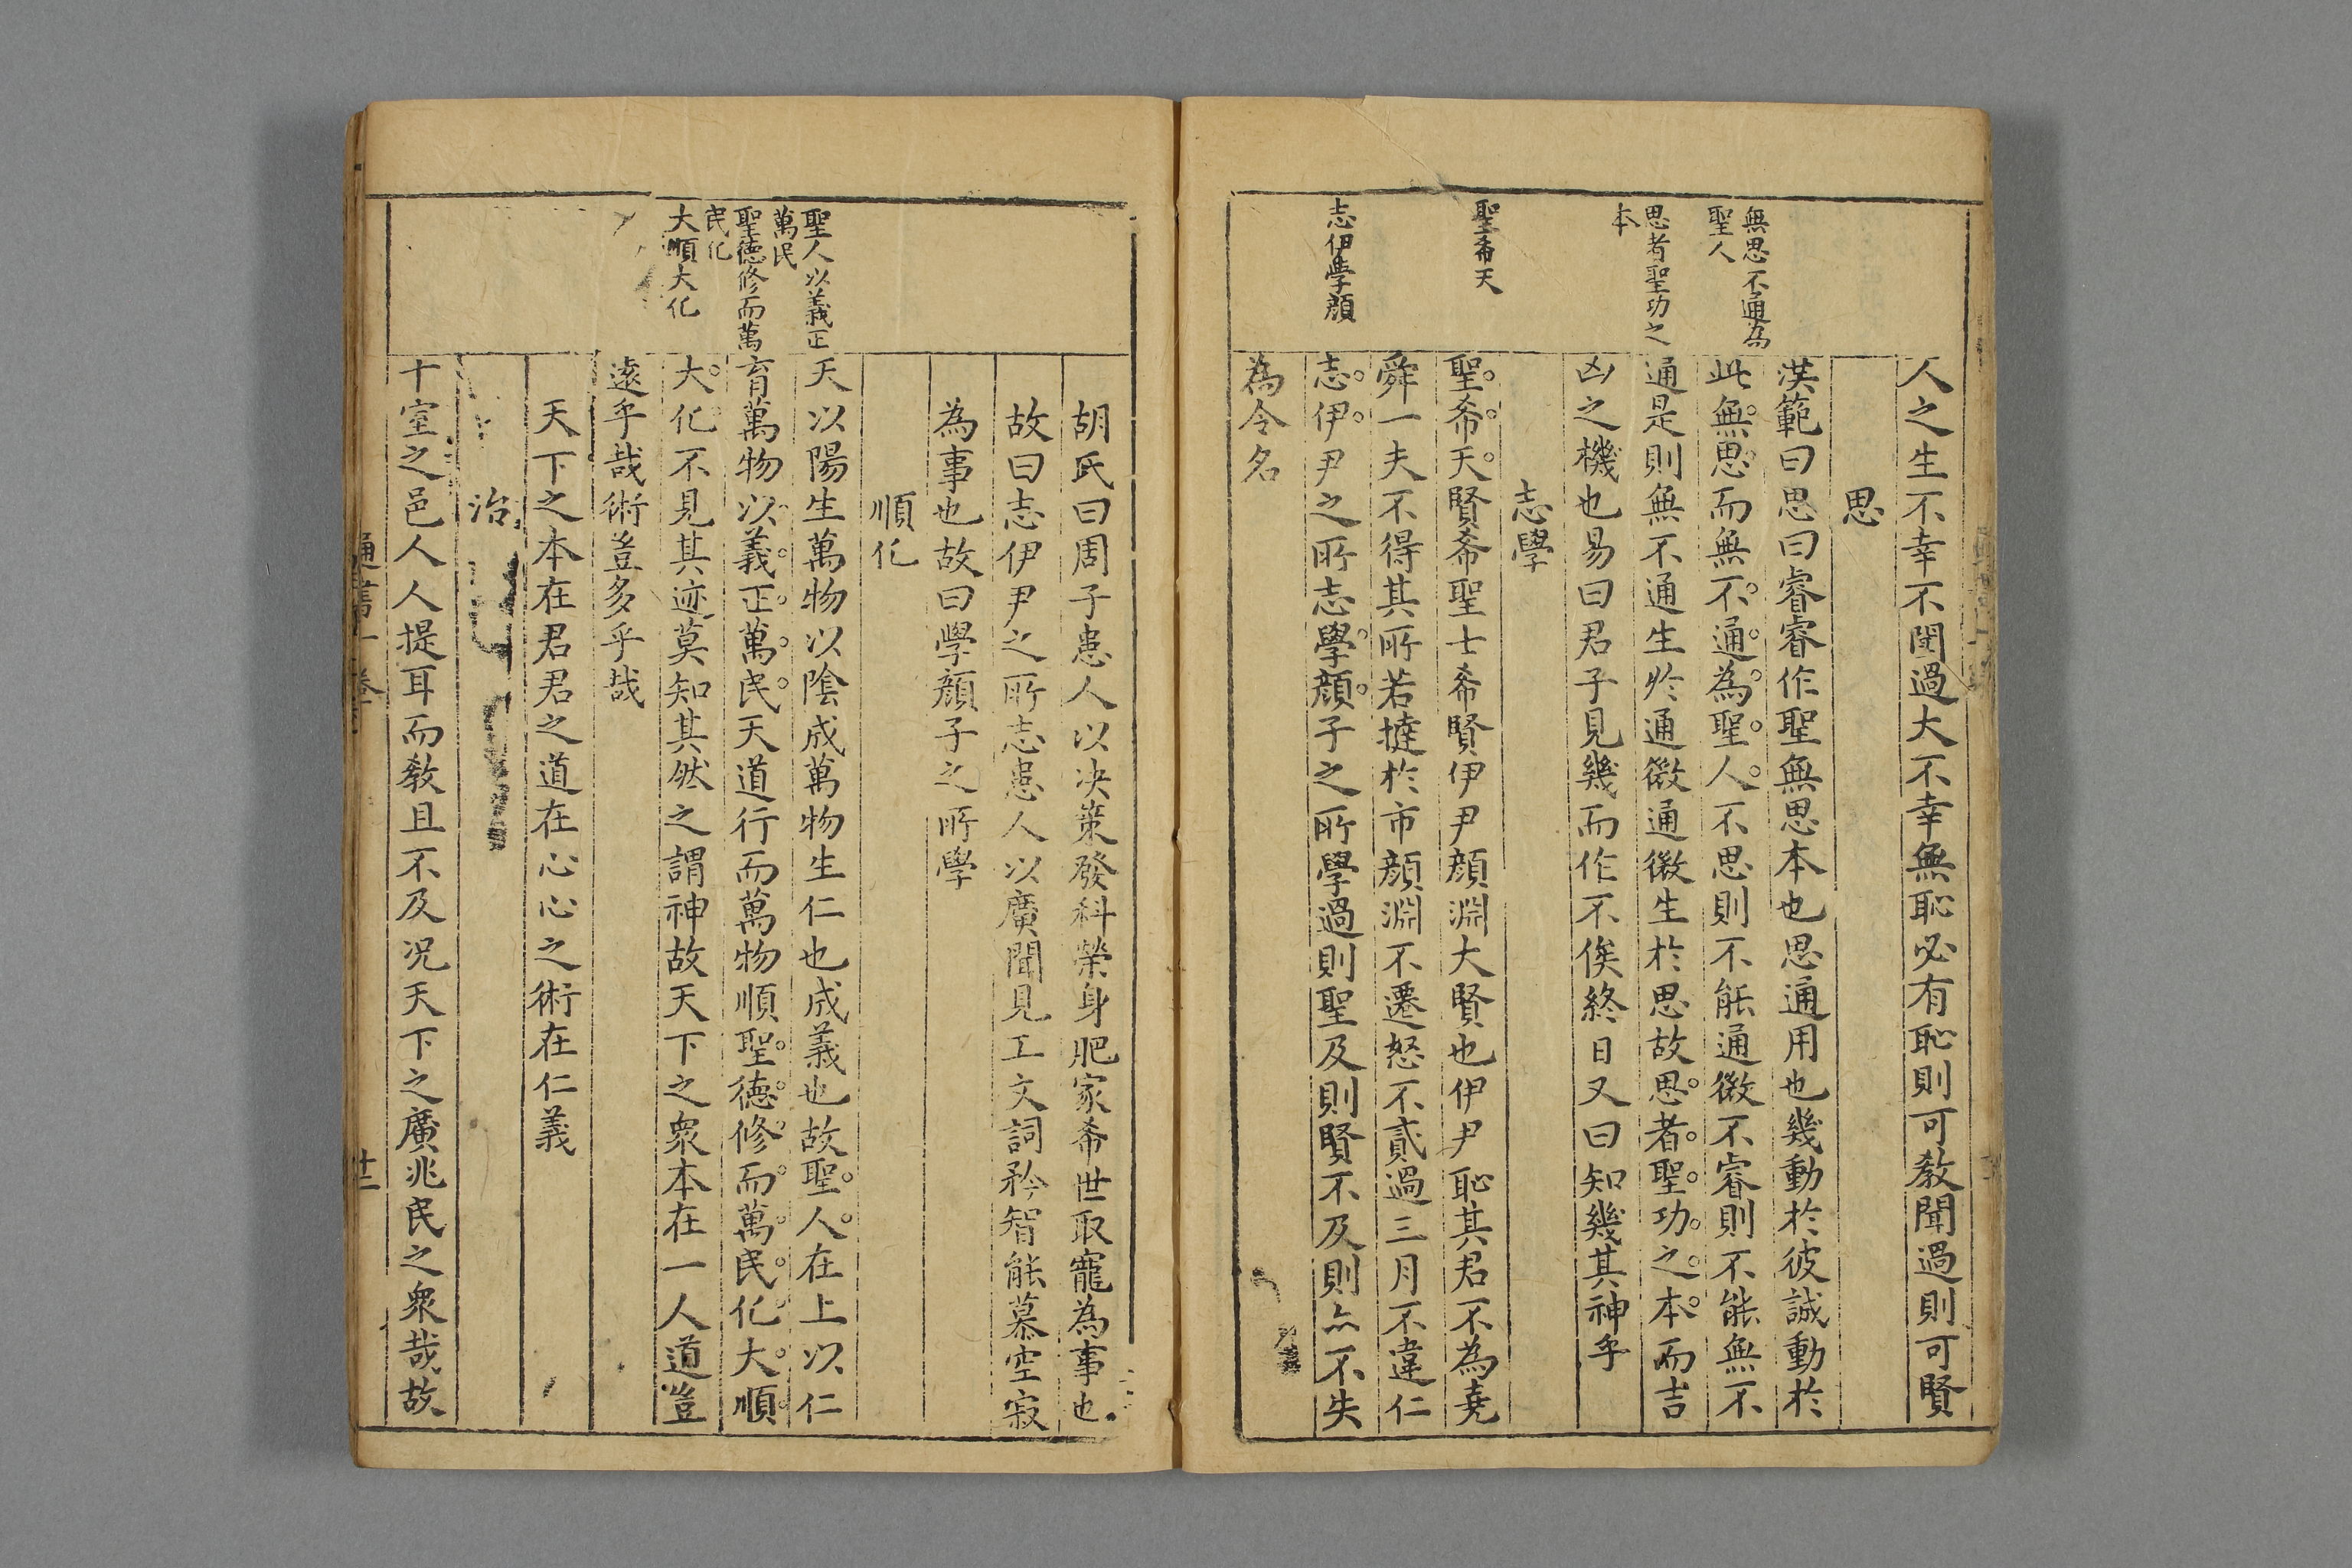 無思不通為
聖人
思者聖功之
本
聖希天
志伊學顏
人之生不幸不聞過大不幸無恥必有恥則可教聞過則可賢
思
洪範曰思曰睿睿作聖無思本也思通用也幾動於彼誠動於
此無思而無不通為聖人不思則不能通微不睿則不能無不
通是則無不通生於通微通微生於思故思者聖功之本而吉
凶之機也易曰君子見幾而作不俟終日又曰知幾其神乎
志學
聖希天賢希聖士希賢伊尹顏淵大賢也伊尹恥其君不為堯
舜一夫不得其所若撻於市顏淵不遷怒不貳過三月不違仁
志伊尹之所志學顏子之所學過則聖及則賢不及則亦不失
為令名
聖人以義正
萬民
聖德修而萬
民化
大順大化
胡氏曰周子患人以决策發科榮身肥家希世取寵為事也
故曰志伊尹之所志患人以廣聞見工文詞矜智能慕空寂
為事也故曰學顏子之所學
順化
天以陽生萬物以陰成萬物生仁也成義也故聖人在上以仁
育萬物以義正萬民天道行而萬物順聖德修而萬民化大順
大化不見其迹莫知其然之謂神故天下之眾本在一人道豈
遠乎哉術豈多乎哉
天下之本在君君之道在心心之術在仁義
治
十室之邑人人提耳而教且不及况天下之廣兆民之眾哉故
通書一卷
廿二